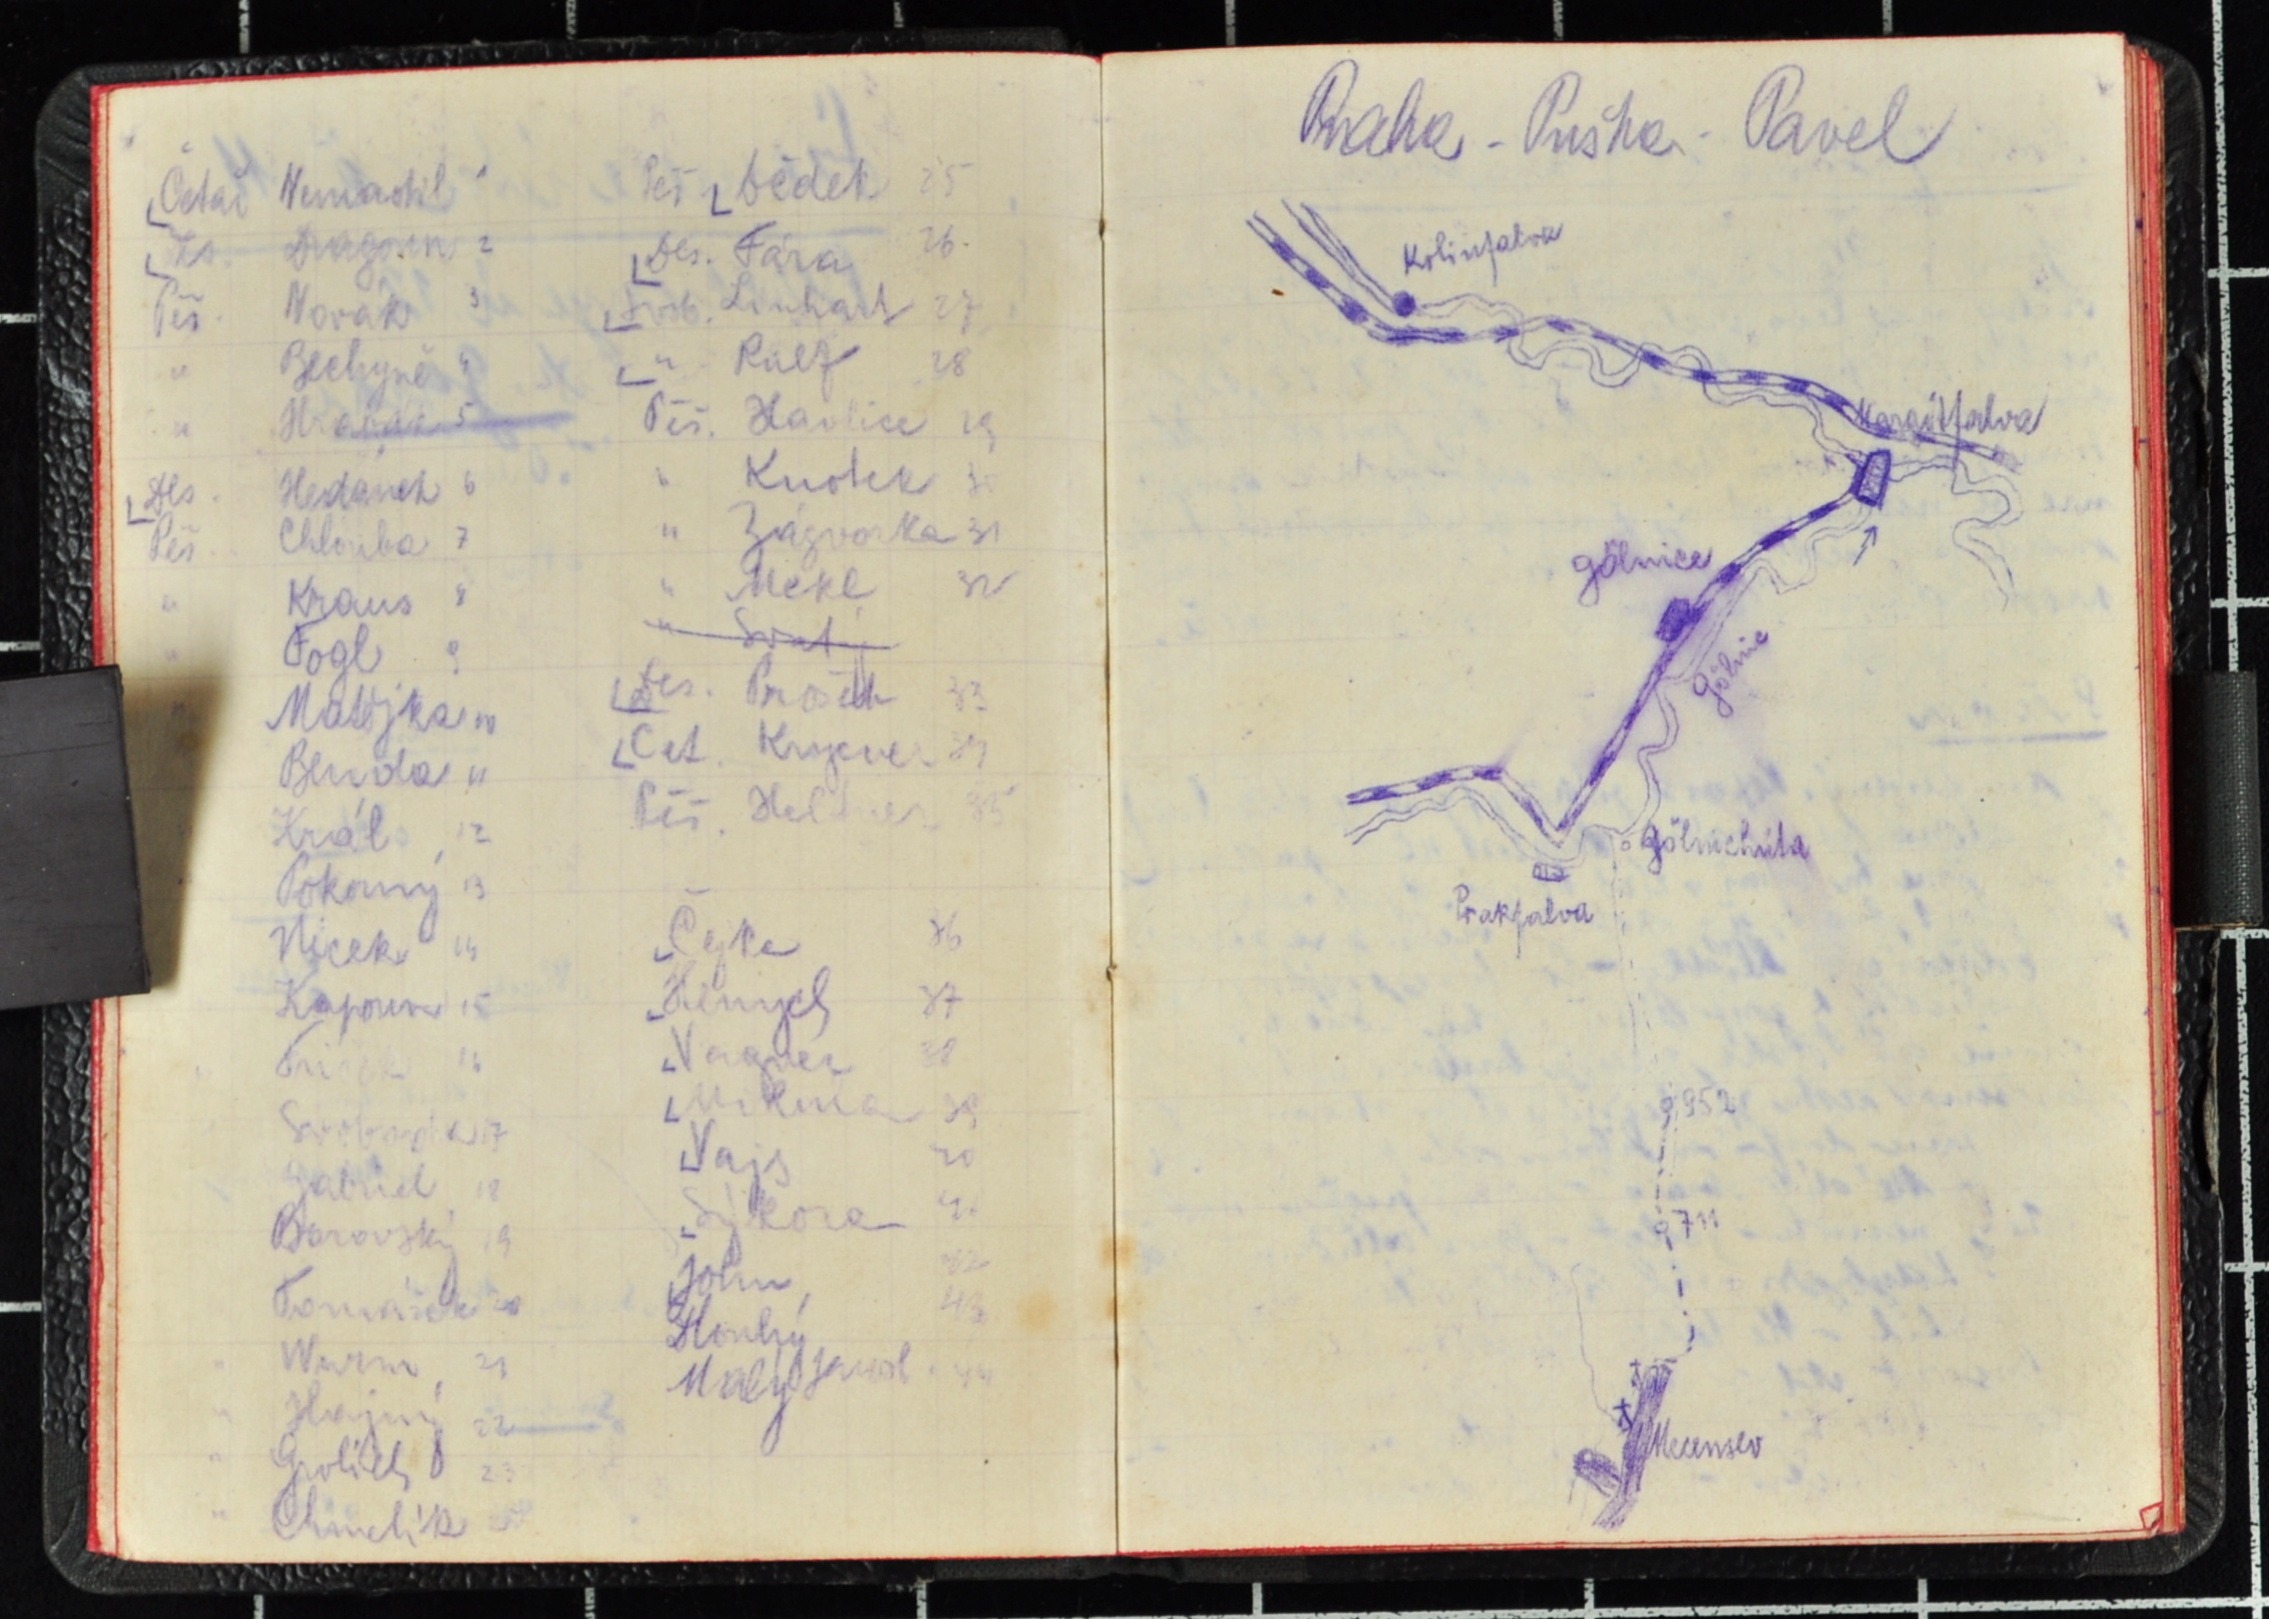 Četař Nemastil 1
Zs. Dragoun 2
Pěš. Novák 3
" Bechyně 4
" Hrabák 5
Des. Hedánek 6
Pěš. Chlouba 7
" Kraus 8
" Fogl 9
" Matějka 10
Benda 11
Král 12
Pokorný 13
Nicek 14
Kapoun 15
16
Svoboda 17
Gabriel 18
Borovský 19
Tomášek 20
" Wurm 21
" Hajný 22
" Grolich 23
" Chmelík
Pěš. Dědek 25
Des. Fára 26.
Svob. Linhart 27
" Rulf 28
Pěš. Havlice 29
" Knotek 30
" Zágvorka 31
" Mekl 32
"
Des. Prošek 33
Čet. 34
Pěš. Heltner 35
Čejka 36
37
Vagner 38
39
Vajs 40
Sýkora 41
John 42
Dlouhý 43
Malý 44
Praha - Puška - Pavel
Kolinfalva
Margitfalva
Gölnice
Gölnic
Gölnichuta
Prakfalva
952
711
Mecensev